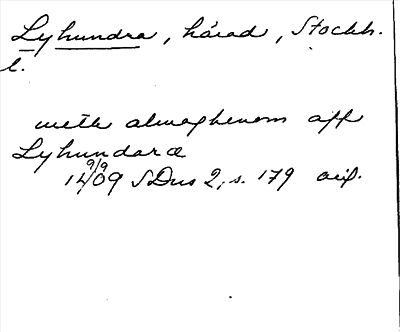 Lyhundra, härad, Stockh.
l.
meth almoghenom aff
Lyhundaræ
9/9
1409 SDns 2, s. 179 avs.